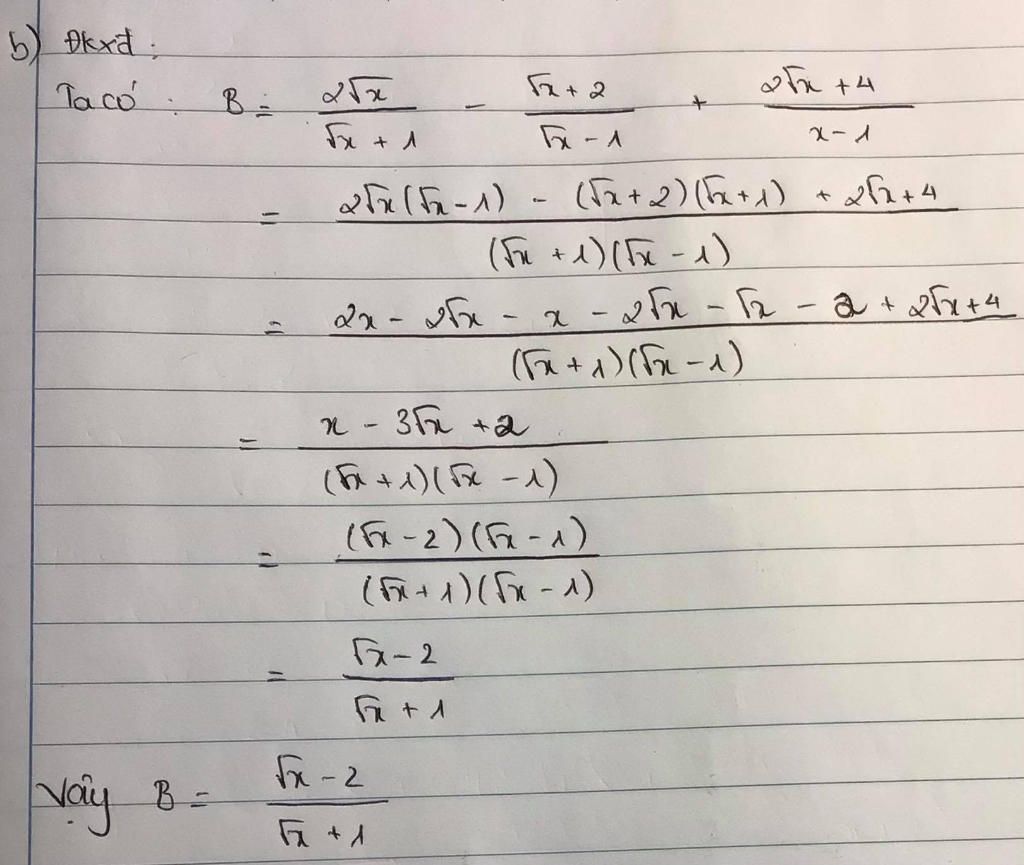 b) Đkxđ:
Ta có: B = 2√x / (√x + 1) - (√x + 2) / (√x - 1) + (2√x + 4) / (x - 1)
= (2√x(√x - 1) - (√x + 2)(√x + 1) + 2√x + 4) / ((√x + 1)(√x - 1))
= (2x - 2√x - x - 2√x - √x - 2 + 2√x + 4) / ((√x + 1)(√x - 1))
= (x - 3√x + 2) / ((√x + 1)(√x - 1))
= ((√x - 2)(√x - 1)) / ((√x + 1)(√x - 1))
= (√x - 2) / (√x + 1)
Vậy B = (√x - 2) / (√x + 1)